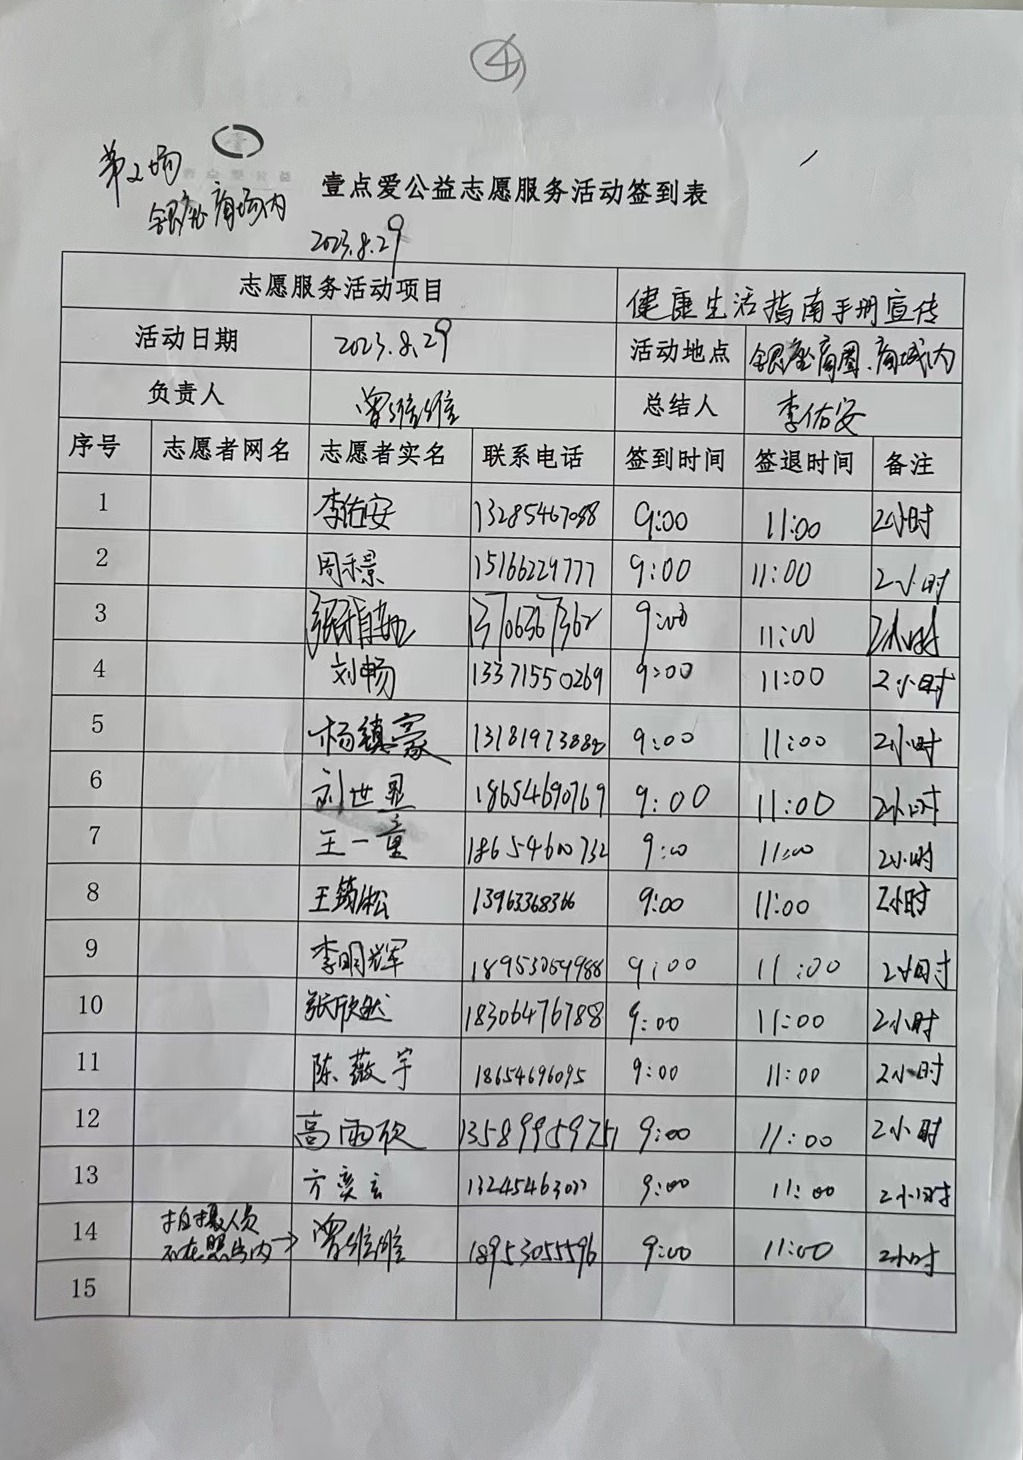 ④
第2场
银座商场内
壹点爱公益志愿服务活动签到表
2023.8.29
志愿服务活动项目 健康生活指南手册宣传
活动日期 2023.8.29 活动地点 银座商圈、商城内
负责人 曾维维 总结人 李佑安
序号 志愿者网名 志愿者实名 联系电话 签到时间 签退时间 备注
1 李佑安 9:00 11:00 2小时
2 15166229777 9:00 11:00 2小时
3 13706367362 9:00 11:00 2小时
4 刘畅 13371550269 9:00 11:00 2小时
5 杨镇豪 9:00 11:00 2小时
6 刘世昱 18654690769 9:00 11:00 2小时
7 王一童 18654600732 9:00 11:00 2小时
8 王筠松 13963368366 9:00 11:00 2小时
9 李明辉 18953054988 9:00 11:00 2小时
10 张欣然 18306476788 9:00 11:00 2小时
11 陈薇宇 18654696095 9:00 11:00 2小时
12 高雨欣 13589959751 9:00 11:00 2小时
13 方奕玄 9:00 11:00 2小时
14 拍摄人员
不在照片内→ 曾维维 18953055596 9:00 11:00 2小时
15